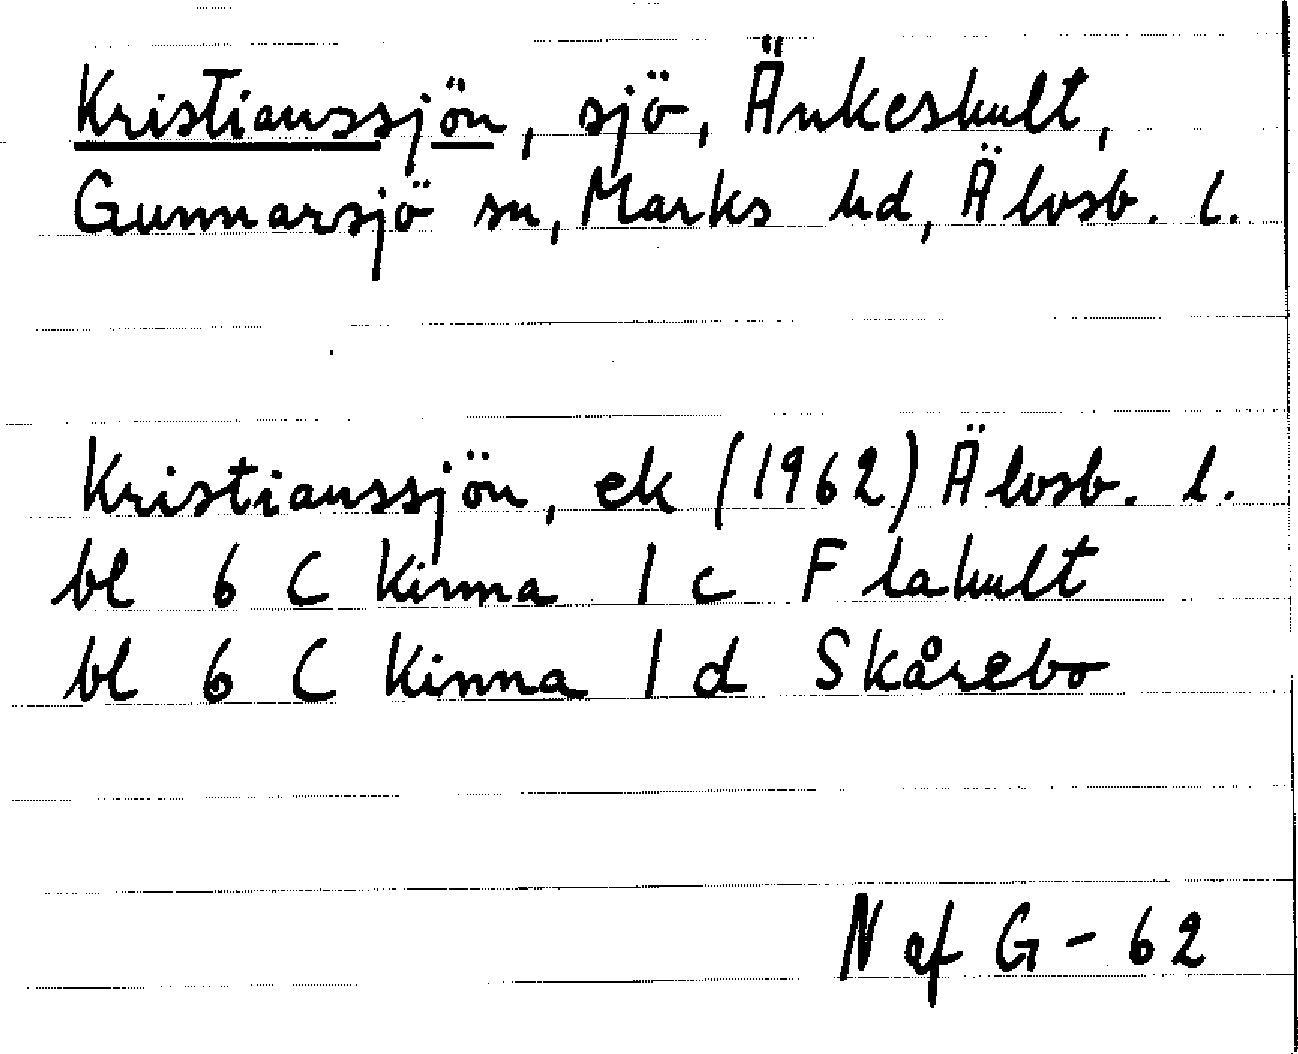 Kristianssjön, sjö, Änkeskult,
Gunnarsjö sn, Marks hd, Älvsb. l.
Kristianssjön, ek (1962) Älvsb. l.
bl 6 C Kinna 1 c Flahult
bl 6 C Kinna 1 d Skårebo
N af G - 62